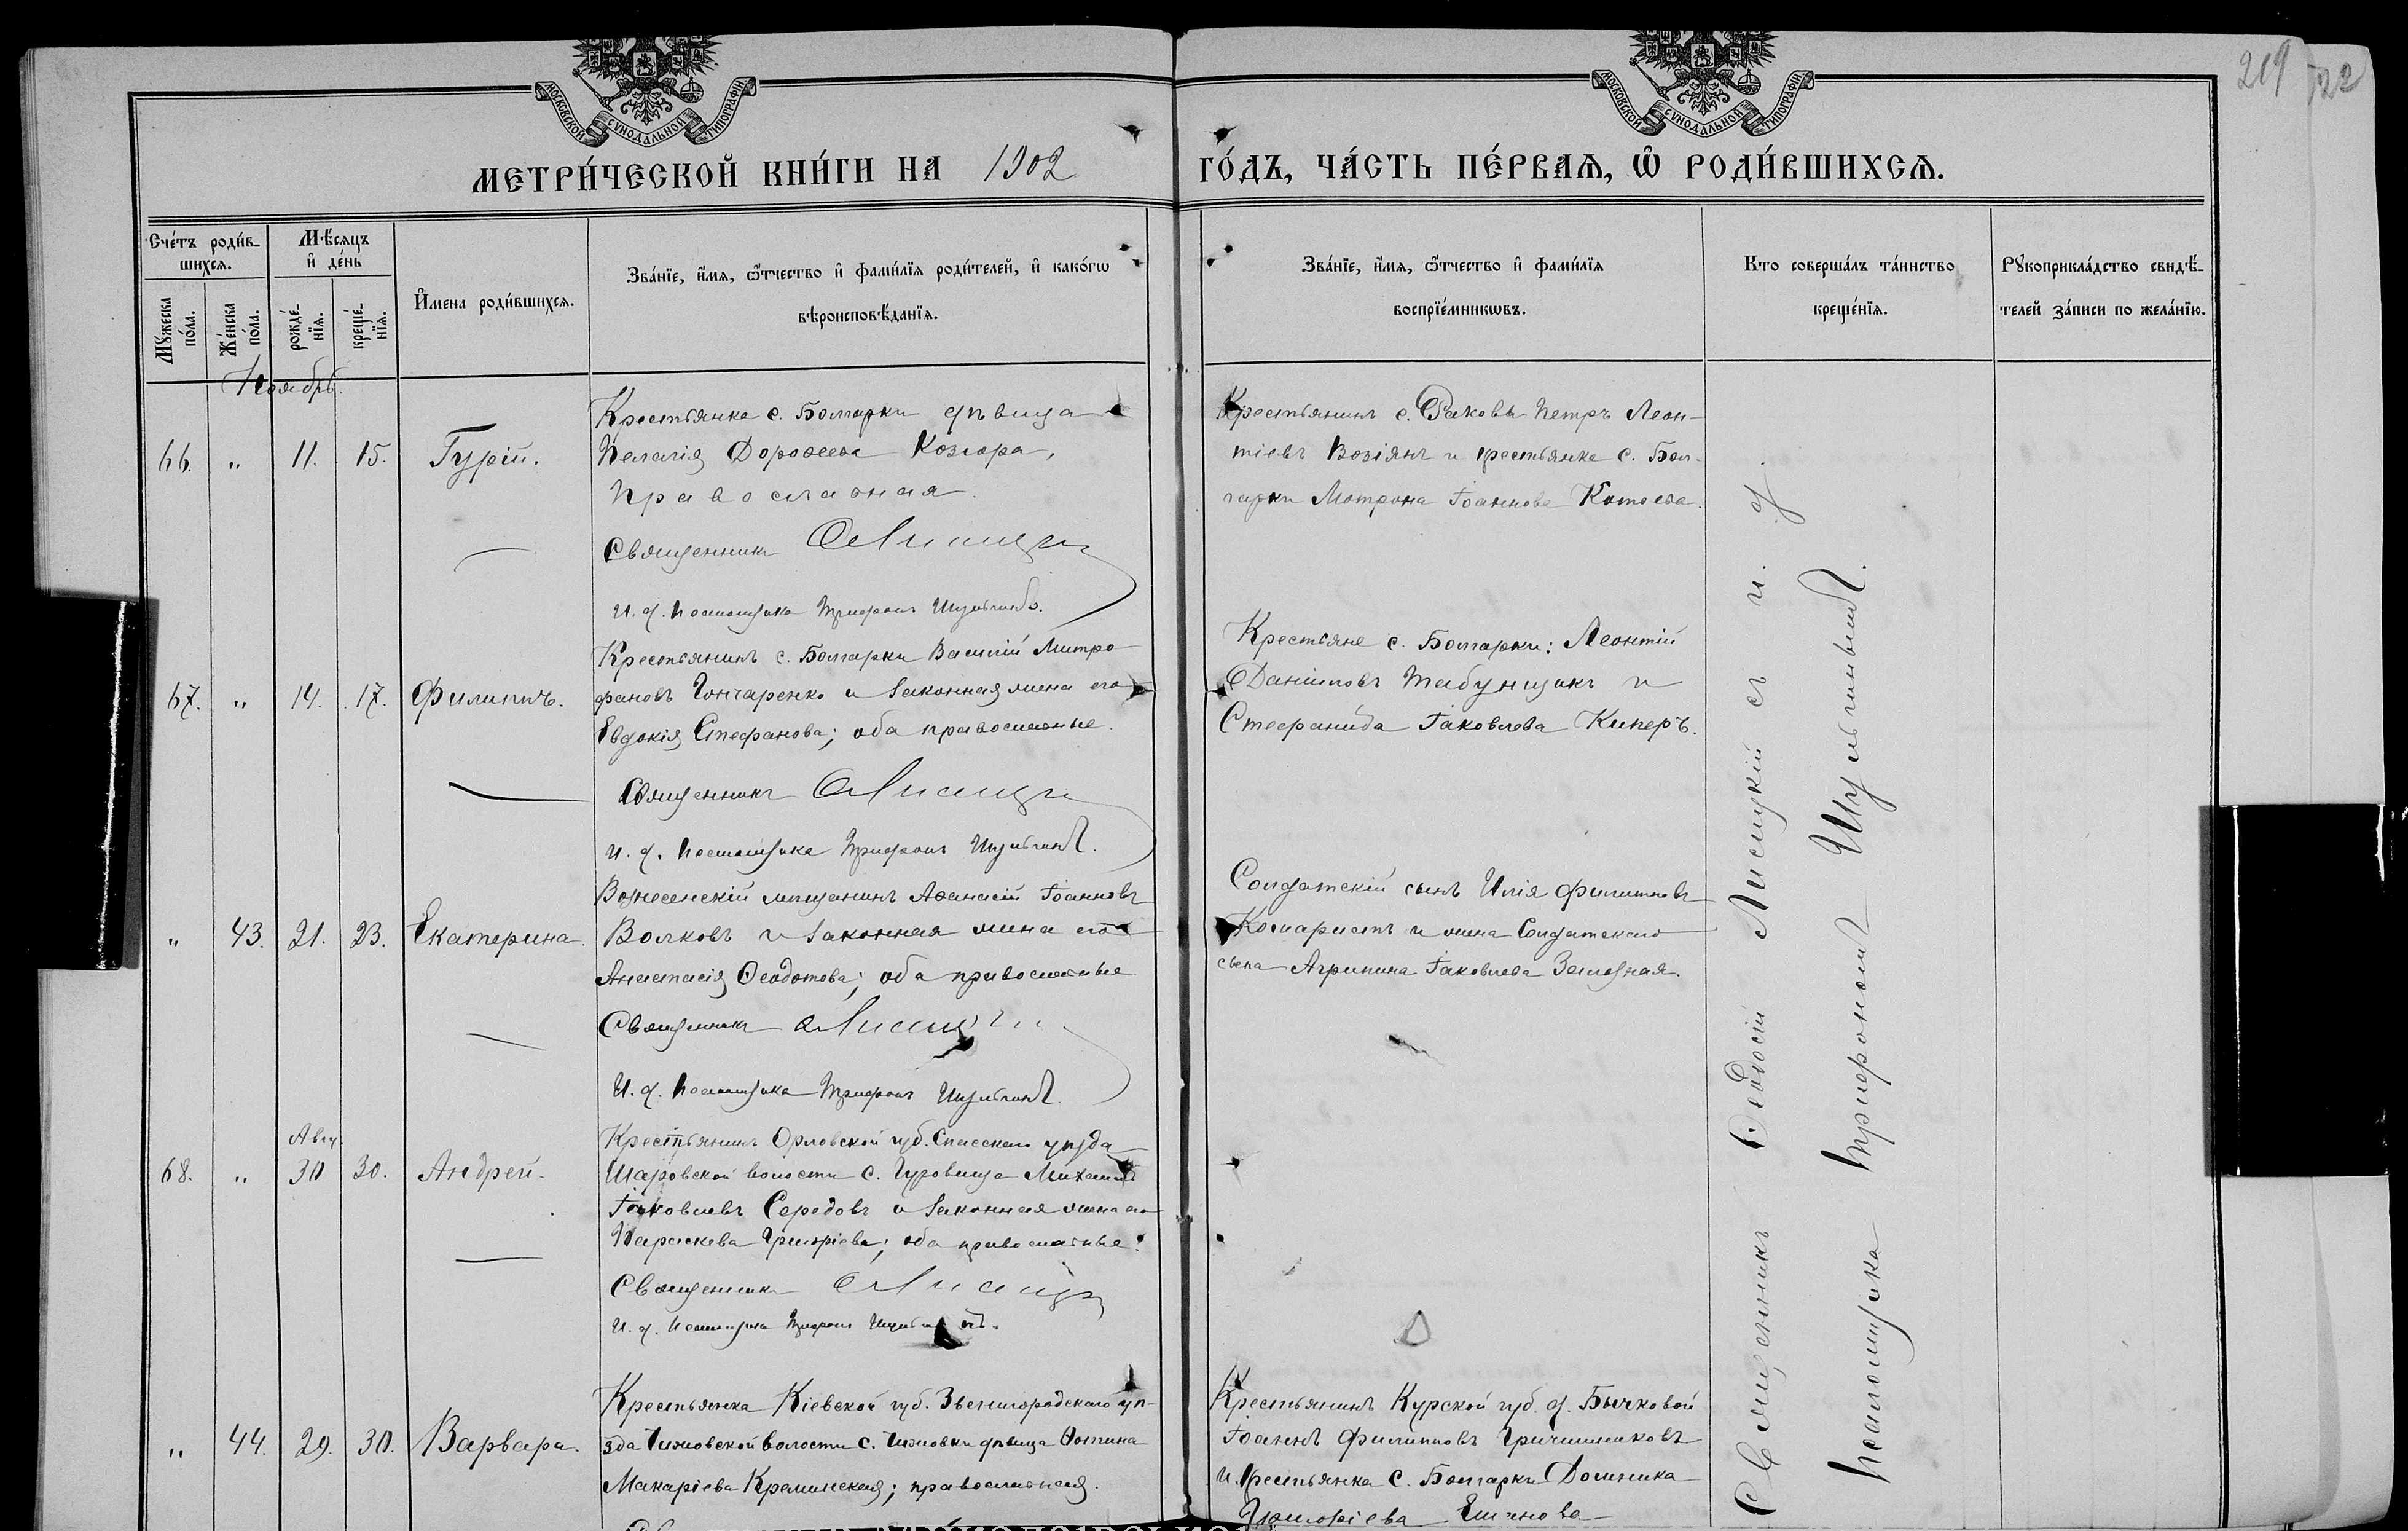 219 722
МОСКОВСКОЙ СѴНОДАЛЬНОЙ ТИПОГРАФІИ
МОСКОВСКОЙ СѴНОДАЛЬНОЙ ТИПОГРАФІИ
МЕТРИ́ЧЕСКОЙ КНИ́ГИ НА 1902 ГО́ДЪ, ЧА́СТЬ ПЕ́РВАѦ, Ѡ҆ РОДИ́ВШИХСѦ.
Сче́тъ роди́в-
шихсѧ.
Мꙋ́жеска
по́ла.
Же́нска
по́ла.
Мѣ́сѧцъ
и҆ де́нь
рожде́-
нїѧ.
креще́-
нїѧ.
И҆мена роди́вшихсѧ.
Зва́нїе, и҆́мѧ, ѻ҆́тчество и҆ фами́лїѧ роди́телей, и҆ како́гѡ
вѣроисповѣ́данїѧ.
Зва́нїе, и҆́мѧ, ѻ҆́тчество и҆ фами́лїѧ
воспрїе́мникѡвъ.
Кто соверша́лъ та́инство
креще́нїѧ.
Рꙋкоприкла́дство свидѣ́-
телей за́писи по жела́нїю.
Ноябрь.
66. " 11. 15. Гурій.
Крестьянка с. Болгарки дѣвица
Пелагія Дороѳеева
Православная.
Священникъ Ѳ Лисицкі
И. д. псаломщика Трифонъ Шульгинъ.
Крестьянинъ с. Раковы Петръ Леон-
тіевъ Возіянъ и крестьянка с. Бол-
гарки Мотрона Іоаннова Котова.
67. " 14. 17. Филиппъ.
Крестьянинъ с. Болгарки Василій Митро-
фановъ Гончаренко и законная жена его
Евдокія Стефанова; оба православные.
Священникъ Ѳ Лисицкі
И. д. псаломщика Трифонъ Шульгинъ.
Крестьяне с. Болгарки: Леонтій
Даніиловъ Табунщикъ и
Стефанида Іаковлева Киперъ.
" 43. 21. 23. Екатерина.
Вознесенскій мѣщанинъ Аѳанасій Іоанновъ
Волковъ и законная жена его
Анастасія Ѳеодотова; оба православные
Священникъ Ѳ Лисицкі
И. д. псаломщика Трифонъ Шульгинъ.
Солдатскій сынъ Илія Филипповъ
и жена Солдатскаго
сына Агрипина Іаковлева
68. " Авг. 30 30. Андрей.
Крестьянинъ Орловской губ. уѣзда
волости с. Михаилъ
Іаковлевъ Середовъ и законная жена его
Параскева Григоріева; оба православные.
Священникъ Ѳ Лисицкі
И. д. псаломщика Трифонъ Шульгинъ.
" 44. 29. 30. Варвара.
Крестьянка Кіевской губ. Звенигородскаго уѣ-
зда Чижовской волости с. Чижовки дѣвица Фотина
Макаріева Креминская; православная.
Крестьянинъ Курской губ. д. Бычковой
Іоаннъ Филипповъ Гричишниковъ
и крестьянка с. Болгарки Домника
Григоріева
Священникъ Ѳеодосій Лисицкій съ и. д.
псаломщика Трифономъ Шульгинымъ.